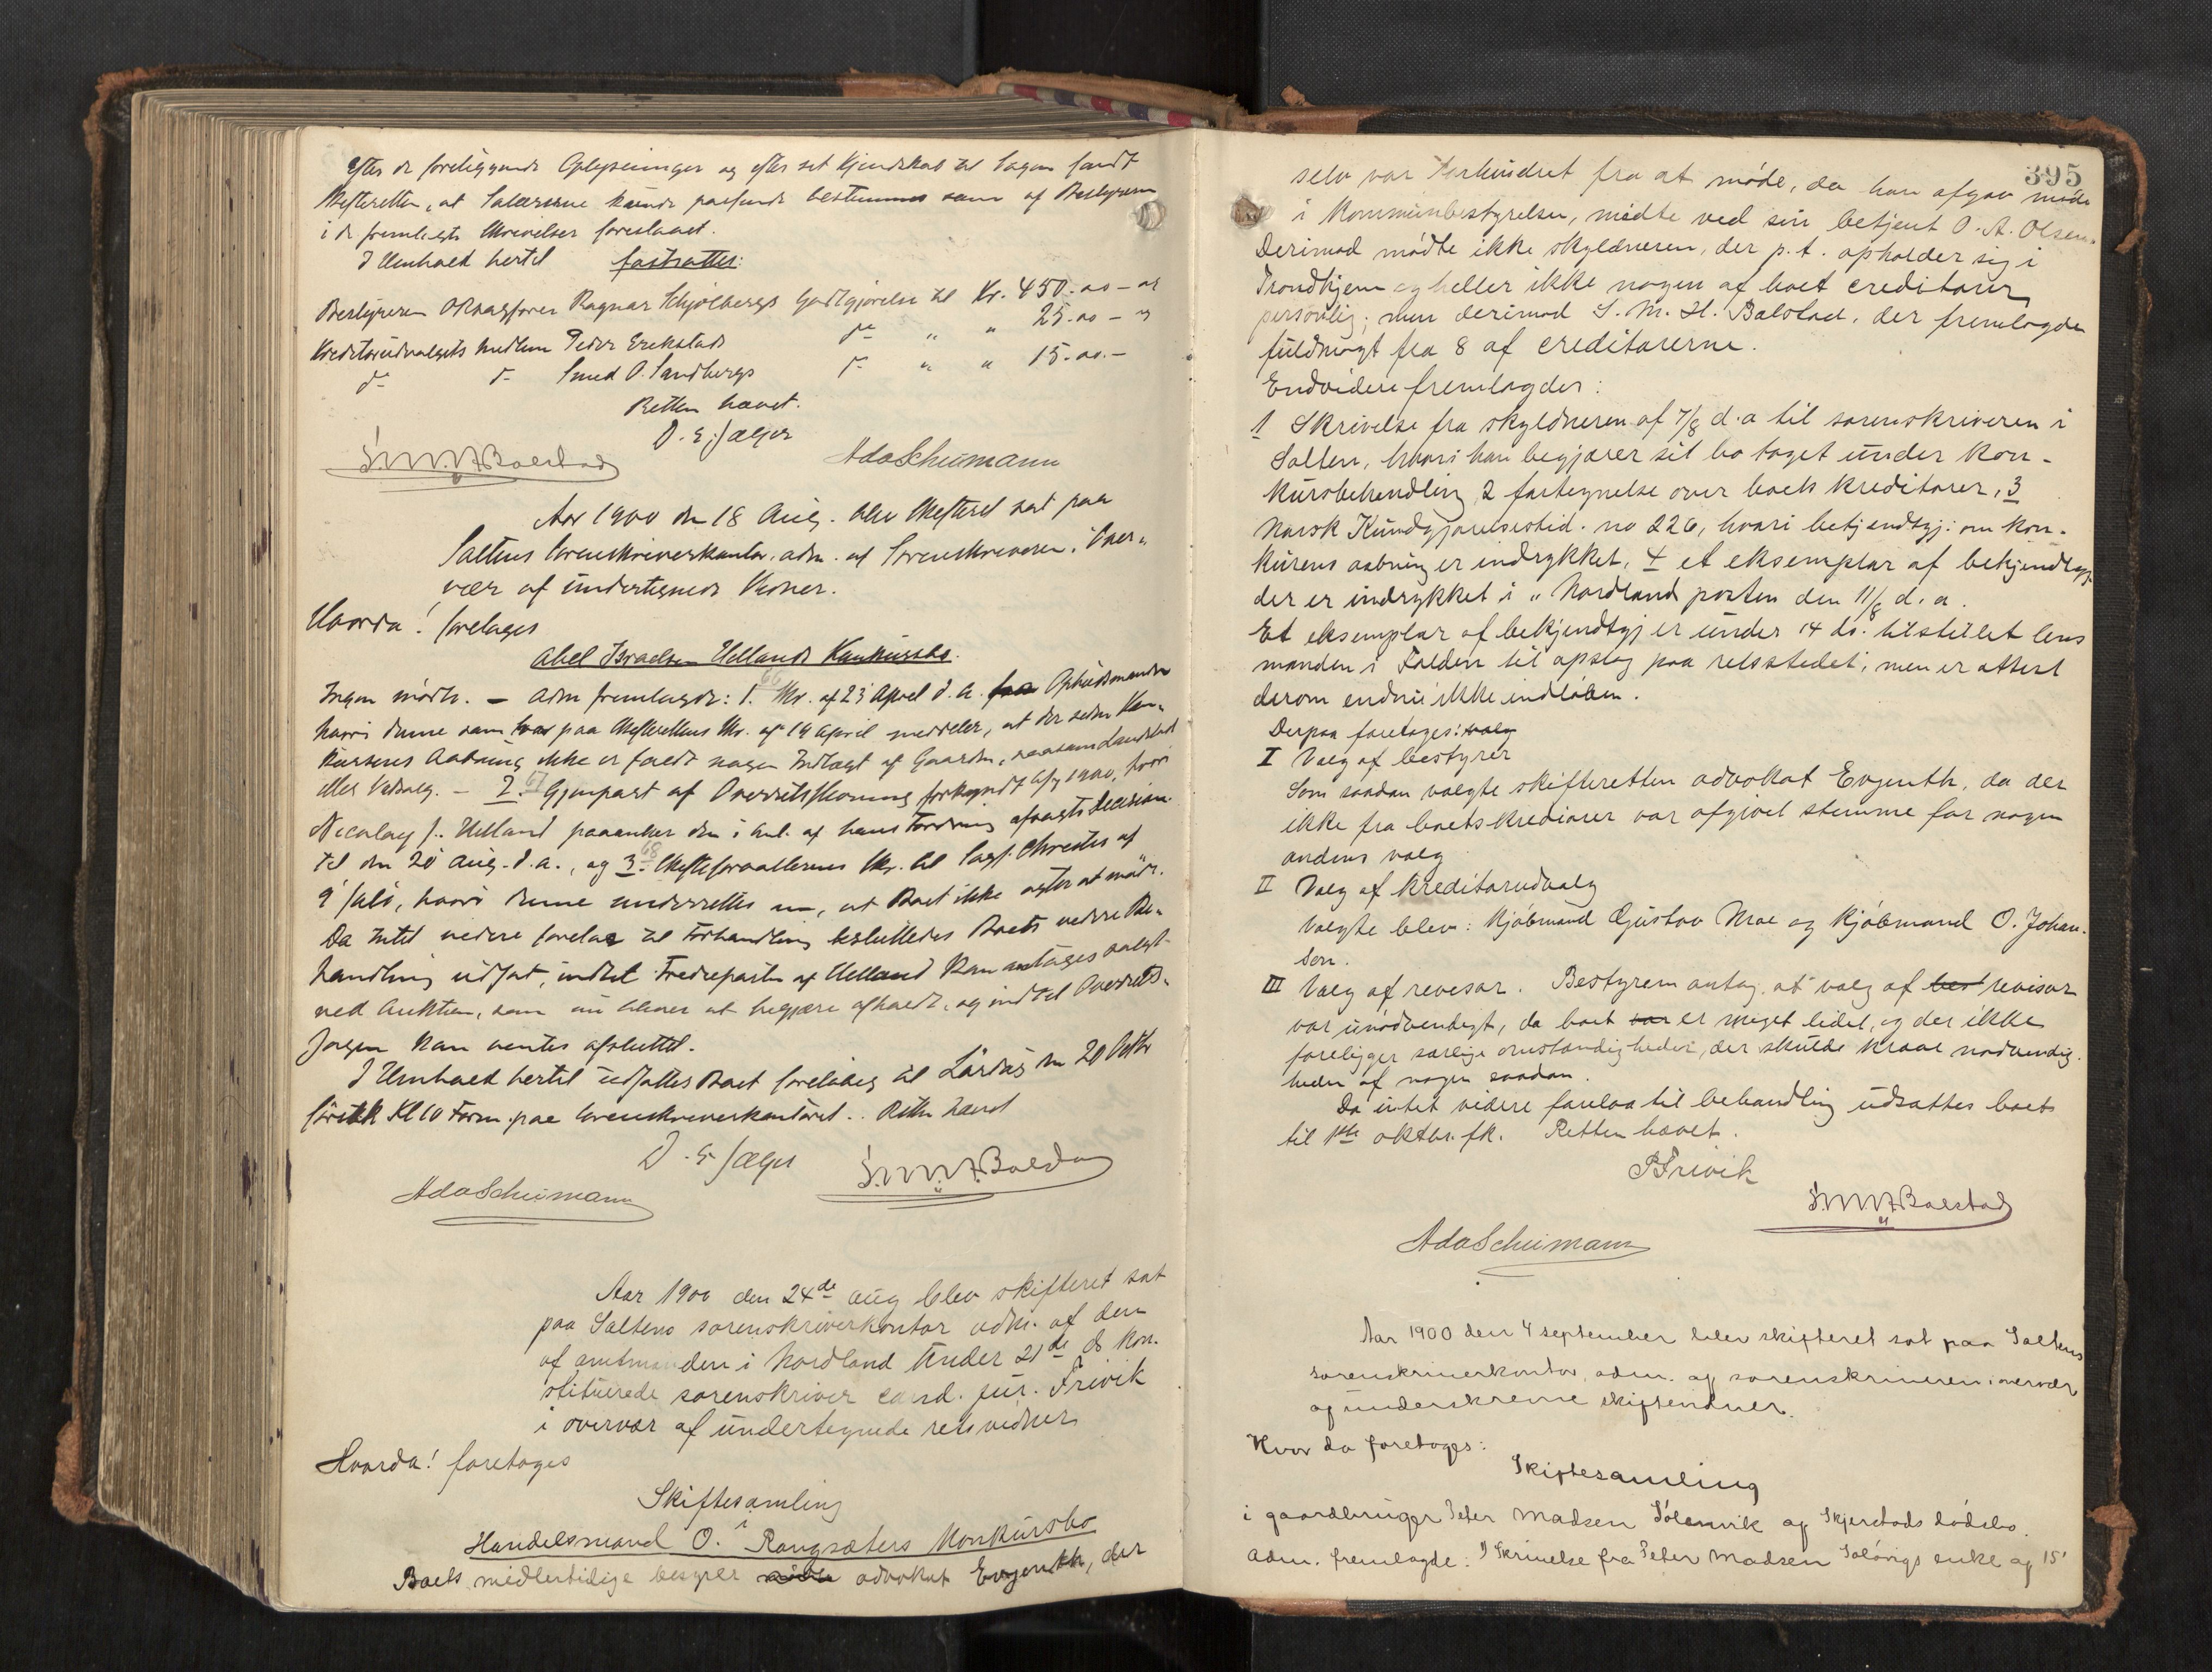 Efter de foreliggende Oplysninger og efter sit Kjendskab til Sagen fandt
Skifteretten, at Salærerne kunde passende bestemmes som af Bestyreren
i de fremlagte Skrivelser foreslaaet.
I Henhold hertil fastsattes:
Bestyreren Overretssagfører Ragnar Schjølbergs Godtgjørelse til Kr. 450.00 - "
Kreditorudvalgets Medlem Peder Erikstads do " " 25.00 - "
do do Smed O. Sandbergs do " " 15.00. -
Retten hævet.
D. E. Jæger
S.M.H Balstad AdaScheimann
Aar 1900 den 18 Aug. blev Skifteret sat paa
Saltens Sorenskriverkontor, adm. af Sorenskriveren i Over-
vær af undertegnede Vidner.
Hvorda! foretoges
Abel Israelsen Hellands Konkursbo.
Ingen mødte. - Adm fremlagde: 1. 66 Skr. af 23 April d. A. fra Opbudsmanden
hvori denne som Svar paa Skifterettens Skr. af 19 April meddeler, at der siden Kon-
kursens Aabning ikke er faldt nogen Indtægt af Gaarden, saasom Landskyld
eller Vedsalg. - 2. 67 Gjenpart af Overretsstevning forkyndt 1900, hvori
Nicolay J. Helland paaanker den i Anl. af hans Fordring afsagte Decision
til den 20 Aug. d. A., og 3. 68 Skifteforvalterens Skr. til Sagf. Christie af
9 Juli, hvori denne underrettes om, at Boet ikke agter at møde.
Da Intet videre forelaa til Forhandling besluttedes Boets videre Be-
handling udsat, indtil Trediepart af Helland kan antages solgt
ved Auktion, som nu bliver at begjære afholdt, og indtil Overrets-
sagen kan ventes afsluttet.
I Henhold hertil udsattes Boet foreløbig til Lørdag den 20 Oktbr
førstk Kl 10 Form. paa Sorenskriverkontoret. Retten hævet
D. E Jæger S.M.H.Balstad
AdaScheimann
Aar 1900 den 24de aug blev skifteret sat
paa Saltens sorenskriverkontor adm. af den
af amtmanden i Nordland under 21de ds kon-
stituerede sorenskriver cand. jur. Frivik
i overvær af undertegnede retsvidner
Hvorda! foretoges
Skiftesamling
i
Handelsmand O. Rangsæters Konkursbo
Boets midlertidige bestyrer advokat Evjenth, der
395
selv var forhindret fra at møde, da han afgav møde
i Kommunbestyrelsen, mødte ved sin betjent O. A. Olsen.
Derimod mødte ikke skyldneren, der p.t. opholder sig i
Trondhjem og heller ikke nogen af boet creditorer
personlig; men derimod S. M. H. Balstad, der fremlagde
fuldmagt fra 8 af creditorerne.
Endvidere fremlagdes:
1 Skrivelse fra skyldneren af 7/8 d.a til sorenskriveren i
Salten, hvori han begjærer sit bo taget under kon-
kursbehandling, 2 fortegnelse over boets kreditorer, 3
Norsk Kundgjørelsestid. no 226, hvori bekjendtgj: om kon-
kursens aabning er indrykket, 4 et eksemplar af bekjendtgj.
der er indrykket i "Nordlandposten den 11/8 d.a.
Et eksemplar af bekjendtgj er under 14 ds. tilstillet lens
manden i Folden til opslag paa retsstedet, men er attest
derom endnu ikke indløben.
Derpaa foretoges: valg
I Valg af bestyrer
Som saadan valgte skifteretten advokat Evjenth, da der
ikke fra boets krediorer var afgivet stemme for nogen
andens valg
II Valg af kreditorudvalg
Valgte blev: Kjøbmand Gustav Moe og kjøbmand O. Johan-
sen.
III Valg af revisor. Bestyreren antog, at valg af best revisor
var unødvendigt, da boet var er meget lidet, og der ikke
foreligger særlige omstændigheder, der skulde kræve nødvendig-
heden af nogen saadan.
Da intet videre forelaa til behandling udsattes boets
til 1ste oktbr. fk. Retten hævet.
PFrivik
S.M.H Balstad
AdaScheimann
Aar 1900 den 4 september blev skifteret sat paa Saltens
sorenskriverkontor, adm. af sorenskriveren i overvær
af underskrevne skiftevidner.
Hvor da foretoges:
Skiftesamling
i gaardbruger Peter Madsen Sølenvik af Skjerstads dødsbo.
Adm. fremlagde: 1 Skrivelse fra Peter Madsen Soløvigs enke af 15'